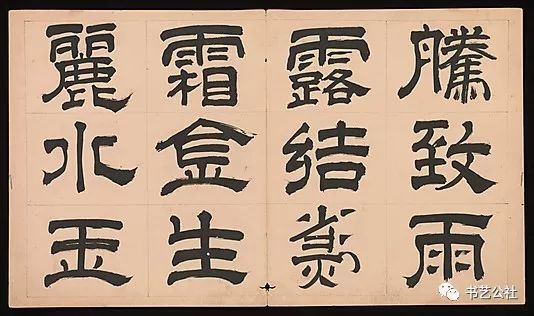 騰致雨
露結爲
霜金生
麗水玉
书艺公社